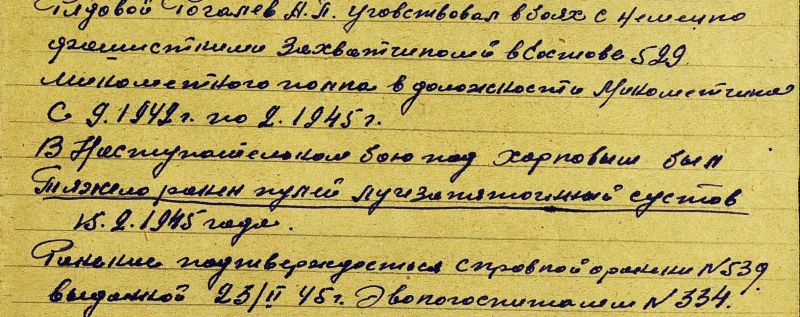 Рядовой Рогалев А.П. участвовал в боях с немецко
фашистскими захватчиками в составе 529
минометного полка в должности Минометчика
С 9.1942 г. по 2.1945 г.
В Наступательном бою под Харповым был
Тяжело ранен пулей лучезапястный сустав
15.2.1945 года.
Ранение подтверждается справкой о ранении N 539
выданной 23/II 45 г. Эвогоспиталем N 334.